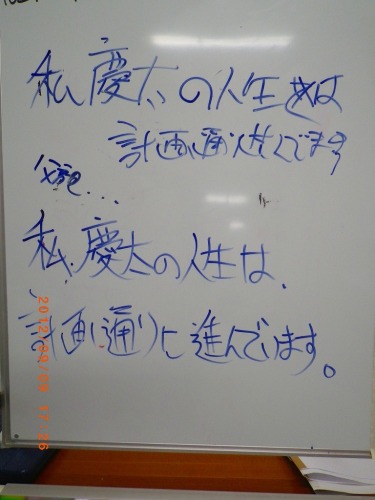 私慶太の人生は
計画通進んでます
私、慶太の人生は、
計画通りに進んでいます。
2012/09/09 17:26